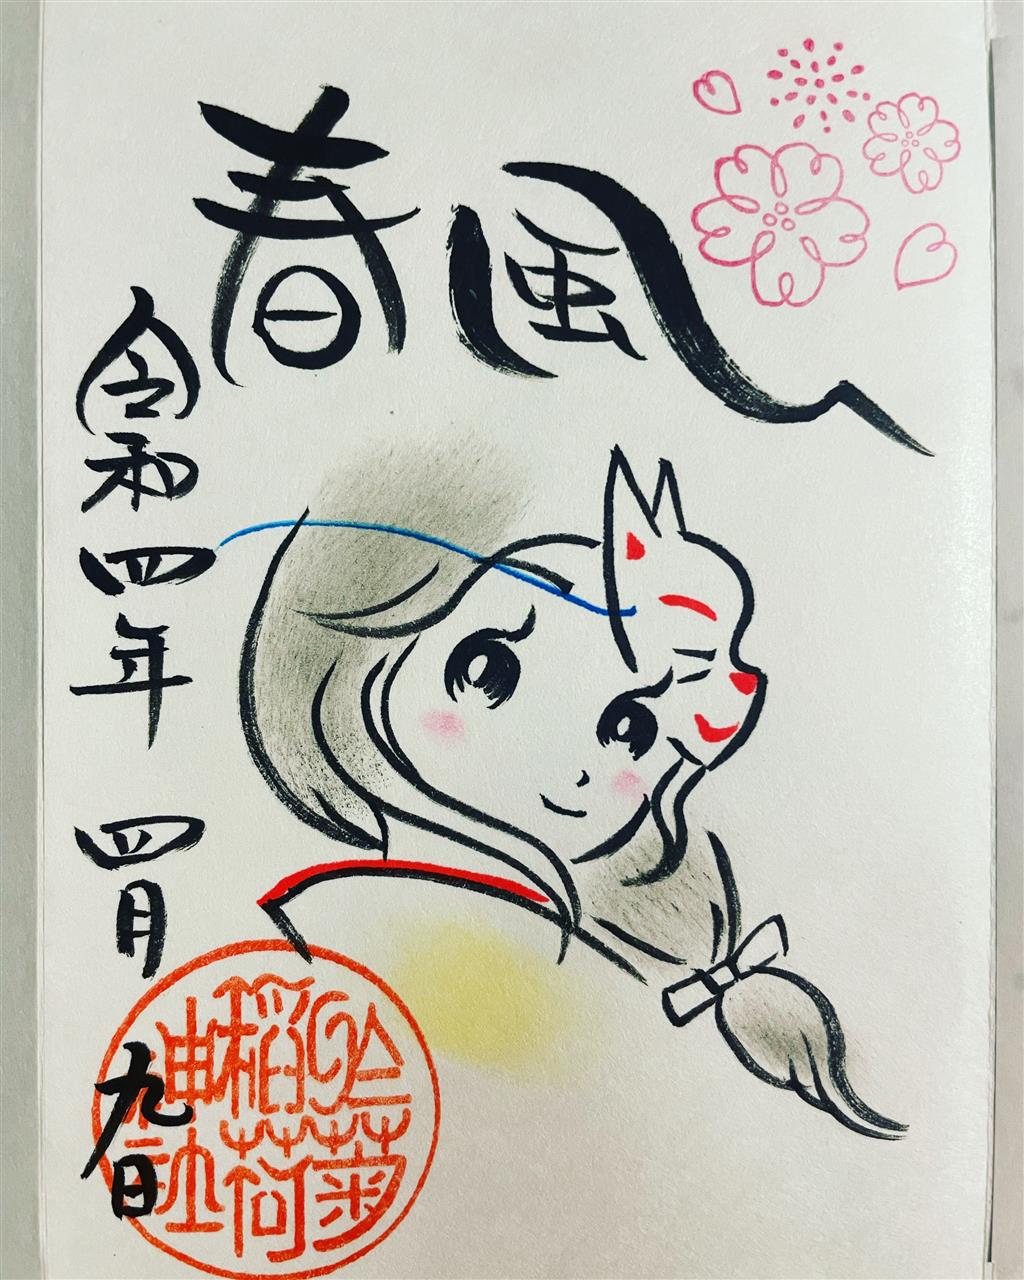 春風
令和四年 四月 九日
於菊
稲荷
神社